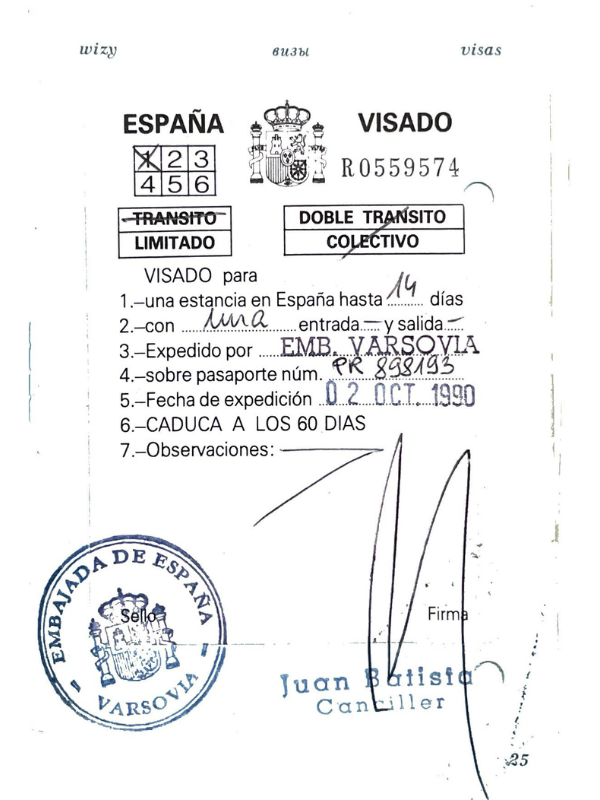 wizy визы visas
ESPAÑA VISADO
1 2 3
4 5 6
R0559574
TRANSITO
LIMITADO
DOBLE TRANSITO
COLECTIVO
VISADO para
1.–una estancia en España hasta 14 días
2.–con una entrada — y salida –
3.–Expedido por EMB. VARSOVIA
4.–sobre pasaporte núm. PR 898193
5.–Fecha de expedición 02 OCT. 1990
6.–CADUCA A LOS 60 DIAS
7.–Observaciones: —
EMBAJADA DE ESPAÑA
– VARSOVIA –
Sello
Firma
Juan Batista
Canciller
25